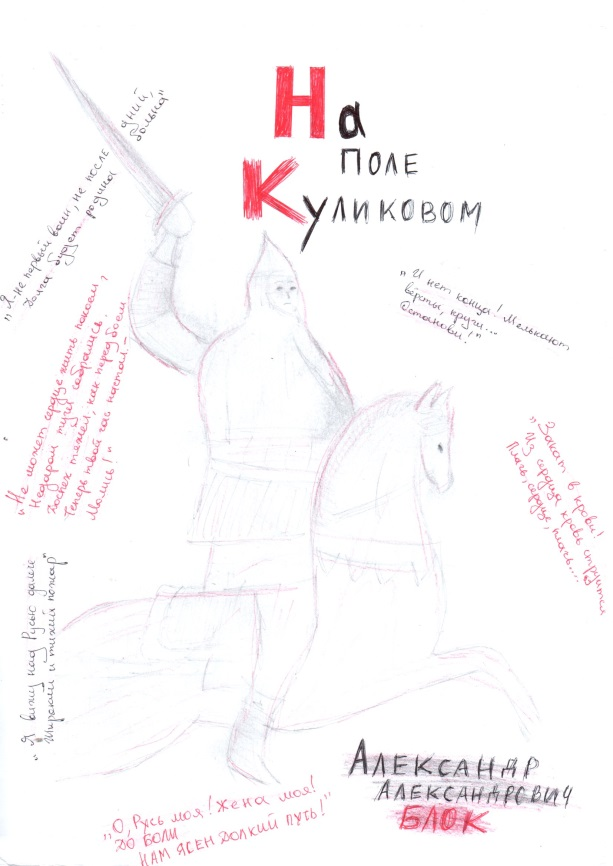 На
поле
Куликовом
"Я - не первый воин, не последний,
Долго будет родина больна"
"И нет конца! Мелькают
вёрсты, кручи...
Останови!"
"Не может сердце жить покоем,
Недаром тучи собрались.
Доспех тяжел, как перед боем.
Теперь твой час настал. -
Молись!"
"Закат в крови!
Из сердца кровь струится
Плачь, сердце, плачь....
"Я вижу над Русью далече
Широкий и тихий пожар"
"О, Русь моя! Жена моя!
До боли
нам ясен долгий путь!"
Александр
Александрович
Блок